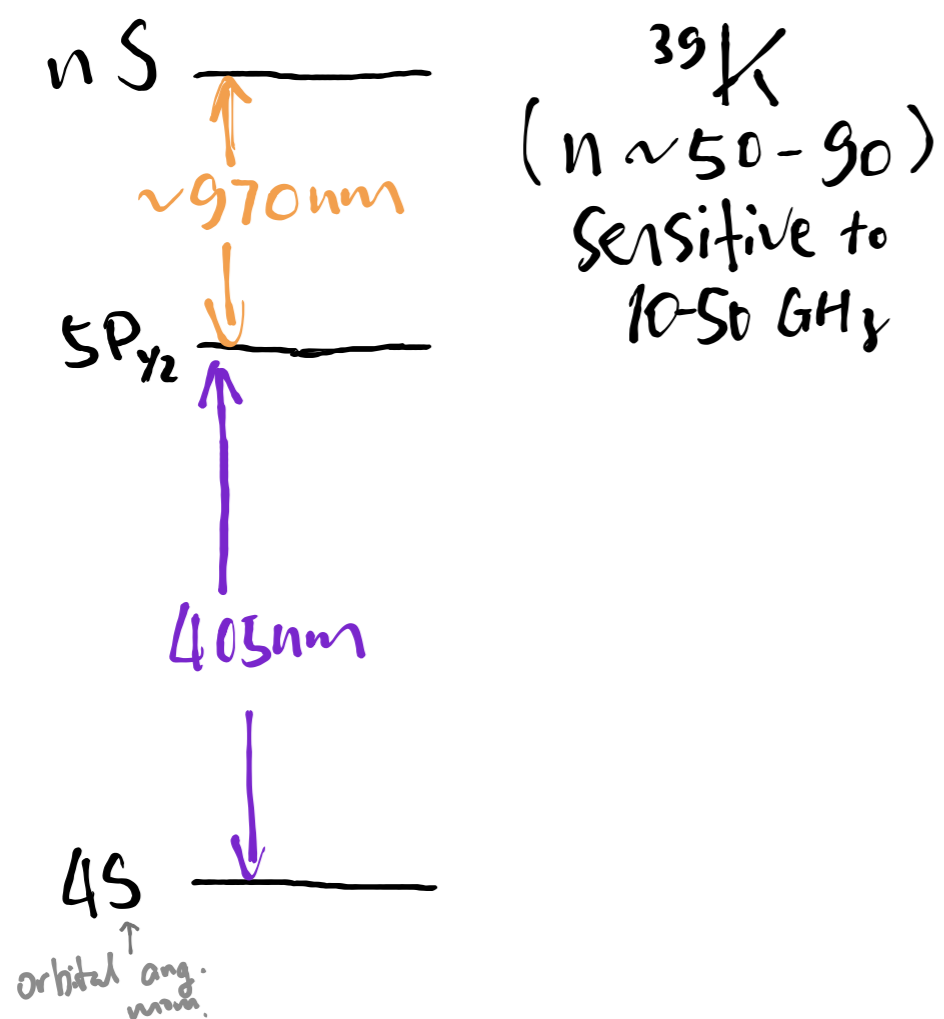 nS
~970nm
5P1/2
405nm
4S
↑
orbital ang.
mom.
39K
(n ~ 50-90)
sensitive to
10-50 GHz